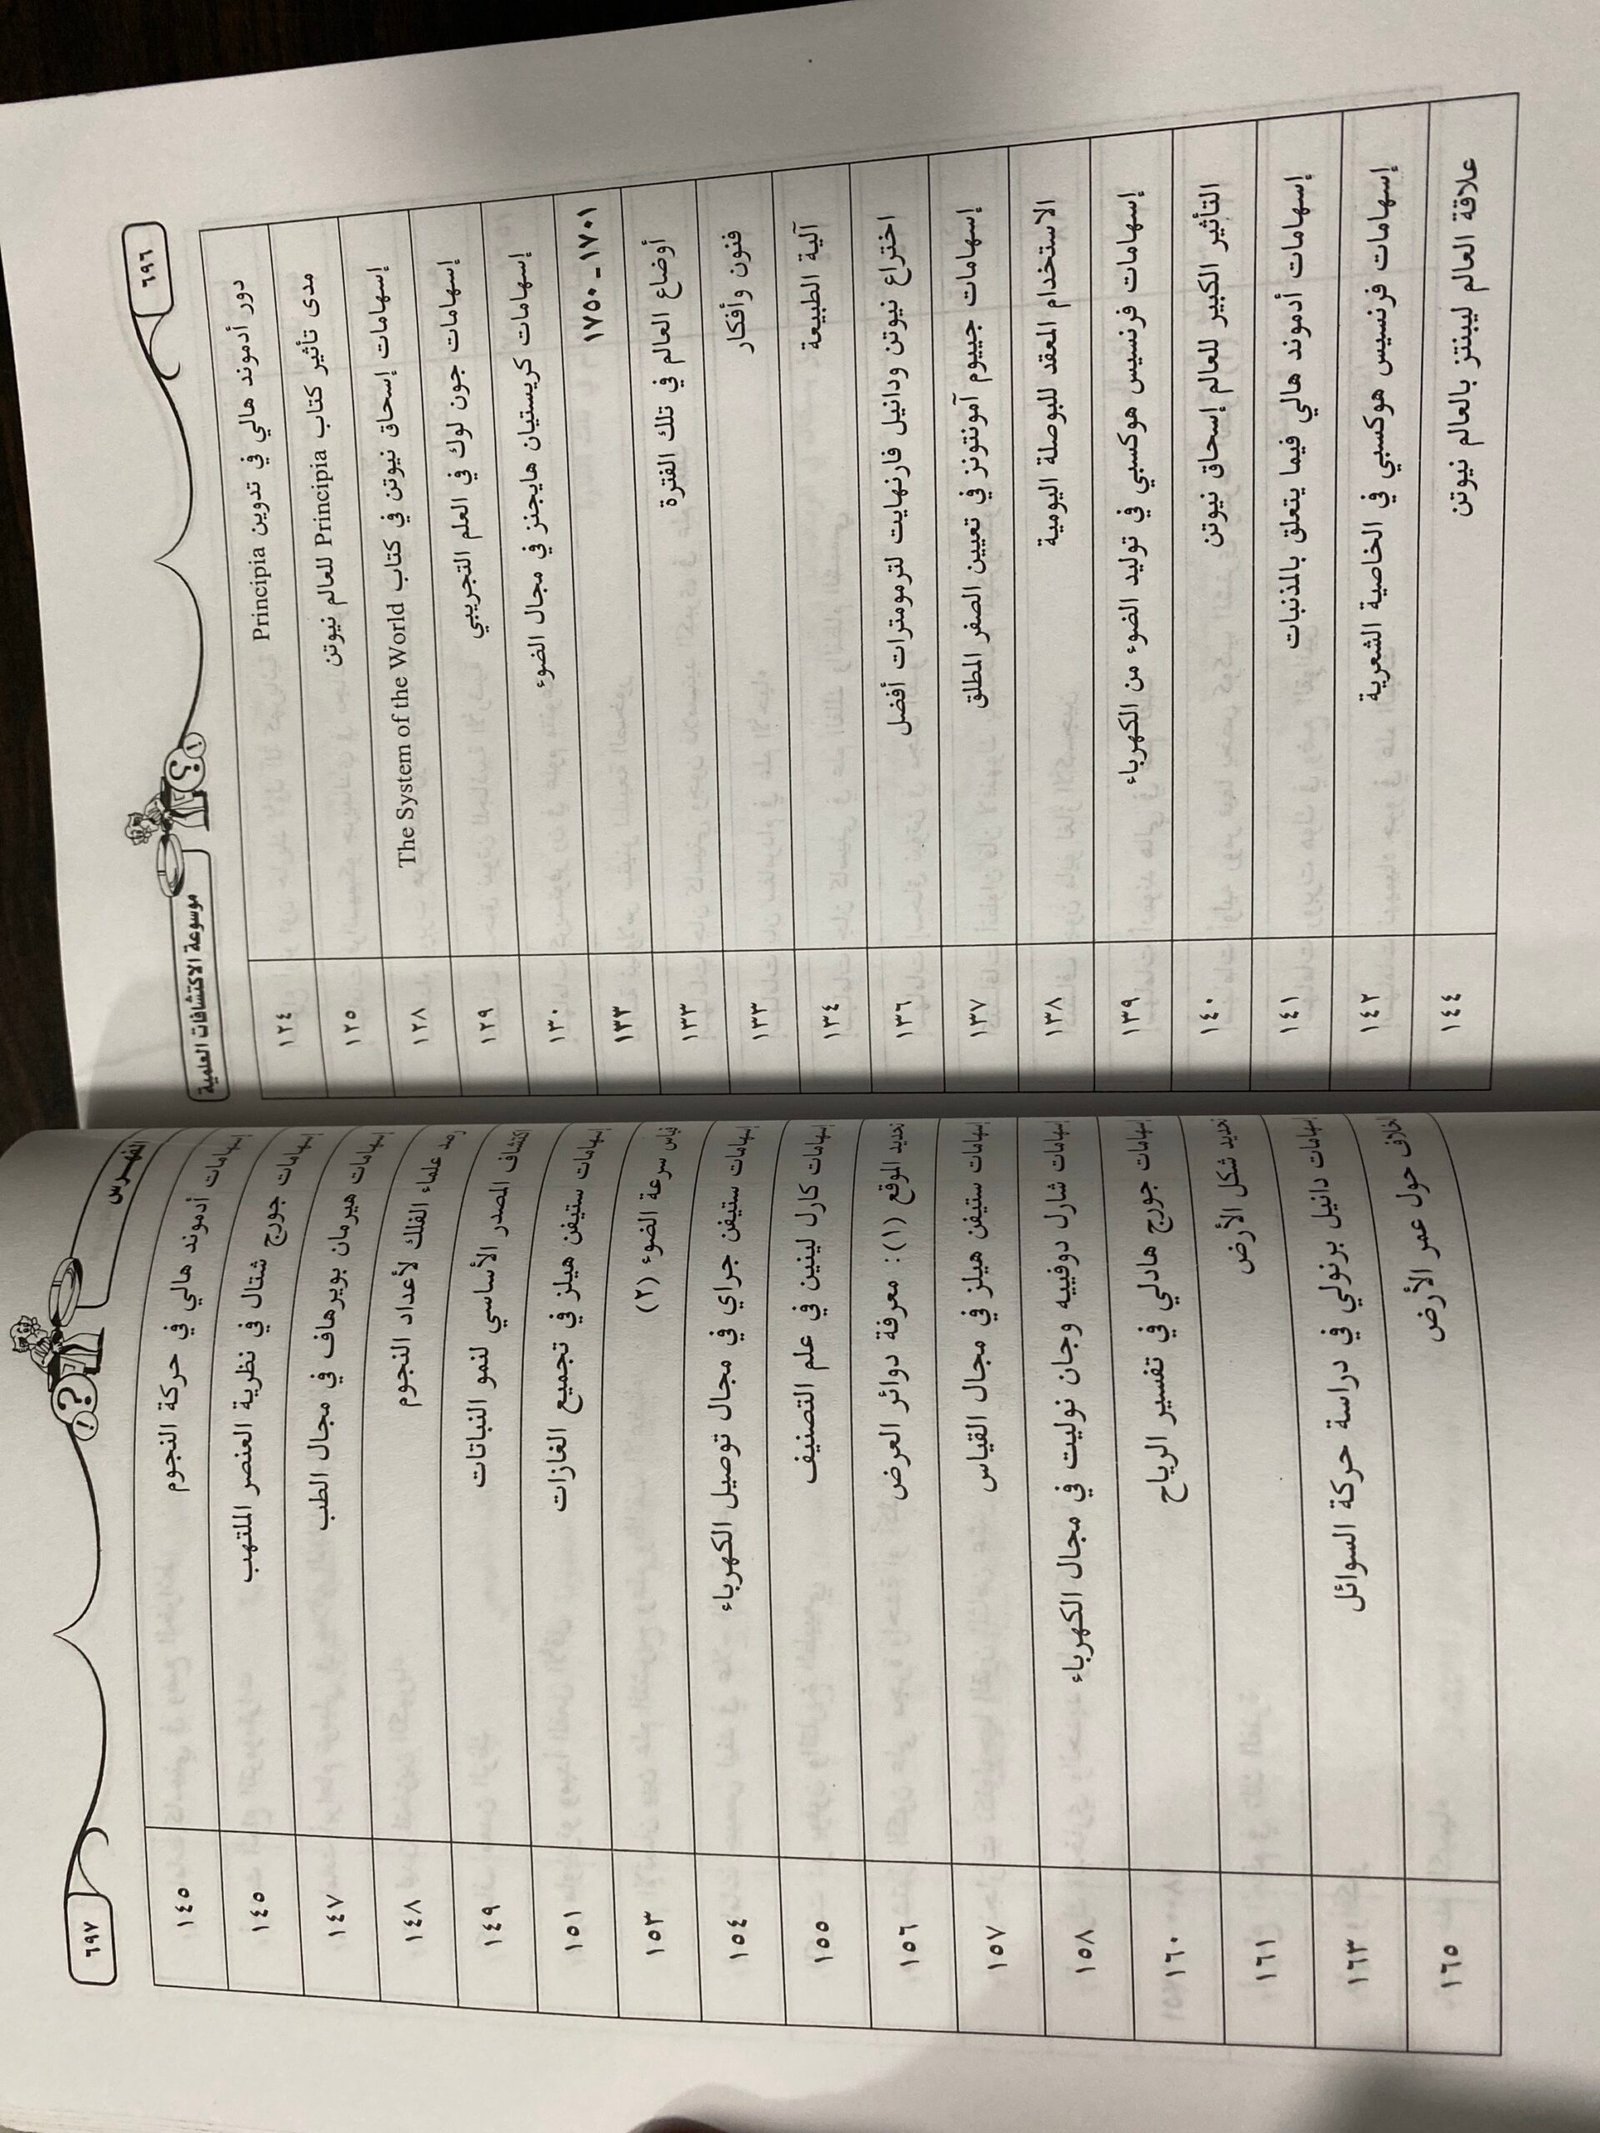 ٦٩٦
موسوعة الاكتشافات العلمية
دور أدموند هالي في تدوين Principia ١٢٤
مدى تأثير كتاب Principia للعالم نيوتن ١٢٥
إسهامات إسحاق نيوتن في كتاب The System of the World ١٢٨
إسهامات جون لوك في العلم التجريبي ١٢٩
إسهامات كريستيان هايجنز في مجال الضوء ١٣٠
١٧٠١ـ١٧٥٠ ١٣٣
أوضاع العالم في تلك الفترة ١٣٣
فنون وأفكار ١٣٣
آلية الطبيعة ١٣٤
اختراع نيوتن ودانيل فارنهايت لترمومترات أفضل ١٣٦
إسهامات جييوم آمونتونز في تعيين الصفر المطلق ١٣٧
الاستخدام المعقد للبوصلة اليومية ١٣٨
إسهامات فرنسيس هوكسبي في توليد الضوء من الكهرباء ١٣٩
التأثير الكبير للعالم إسحاق نيوتن ١٤٠
إسهامات أدموند هالي فيما يتعلق بالمذنبات ١٤١
إسهامات فرنسيس هوكسبي في الخاصية الشعرية ١٤٢
علاقة العالم ليبنتز بالعالم نيوتن ١٤٤
الفهرس
٦٩٧
إسهامات أدموند هالي في حركة النجوم ١٤٥
إسهامات جورج شتال في نظرية العنصر الملتهب ١٤٥
إسهامات هيرمان بويرهاف في مجال الطب ١٤٧
رصد علماء الفلك لأعداد النجوم ١٤٨
اكتشاف المصدر الأساسي لنمو النباتات ١٤٩
إسهامات ستيفن هيلز في تجميع الغازات ١٥١
قياس سرعة الضوء (٢) ١٥٣
إسهامات ستيفن جراي في مجال توصيل الكهرباء ١٥٤
إسهامات كارل لينين في علم التصنيف ١٥٥
تحديد الموقع (١): معرفة دوائر العرض ١٥٦
إسهامات ستيفن هيلز في مجال القياس ١٥٧
إسهامات شارل دوفييه وجان نوليت في مجال الكهرباء ١٥٨
إسهامات جورج هادلي في تفسير الرياح ١٦٠
تحديد شكل الأرض ١٦١
إسهامات دانيل برنولي في دراسة حركة السوائل ١٦٣
خلاف حول عمر الأرض ١٦٥